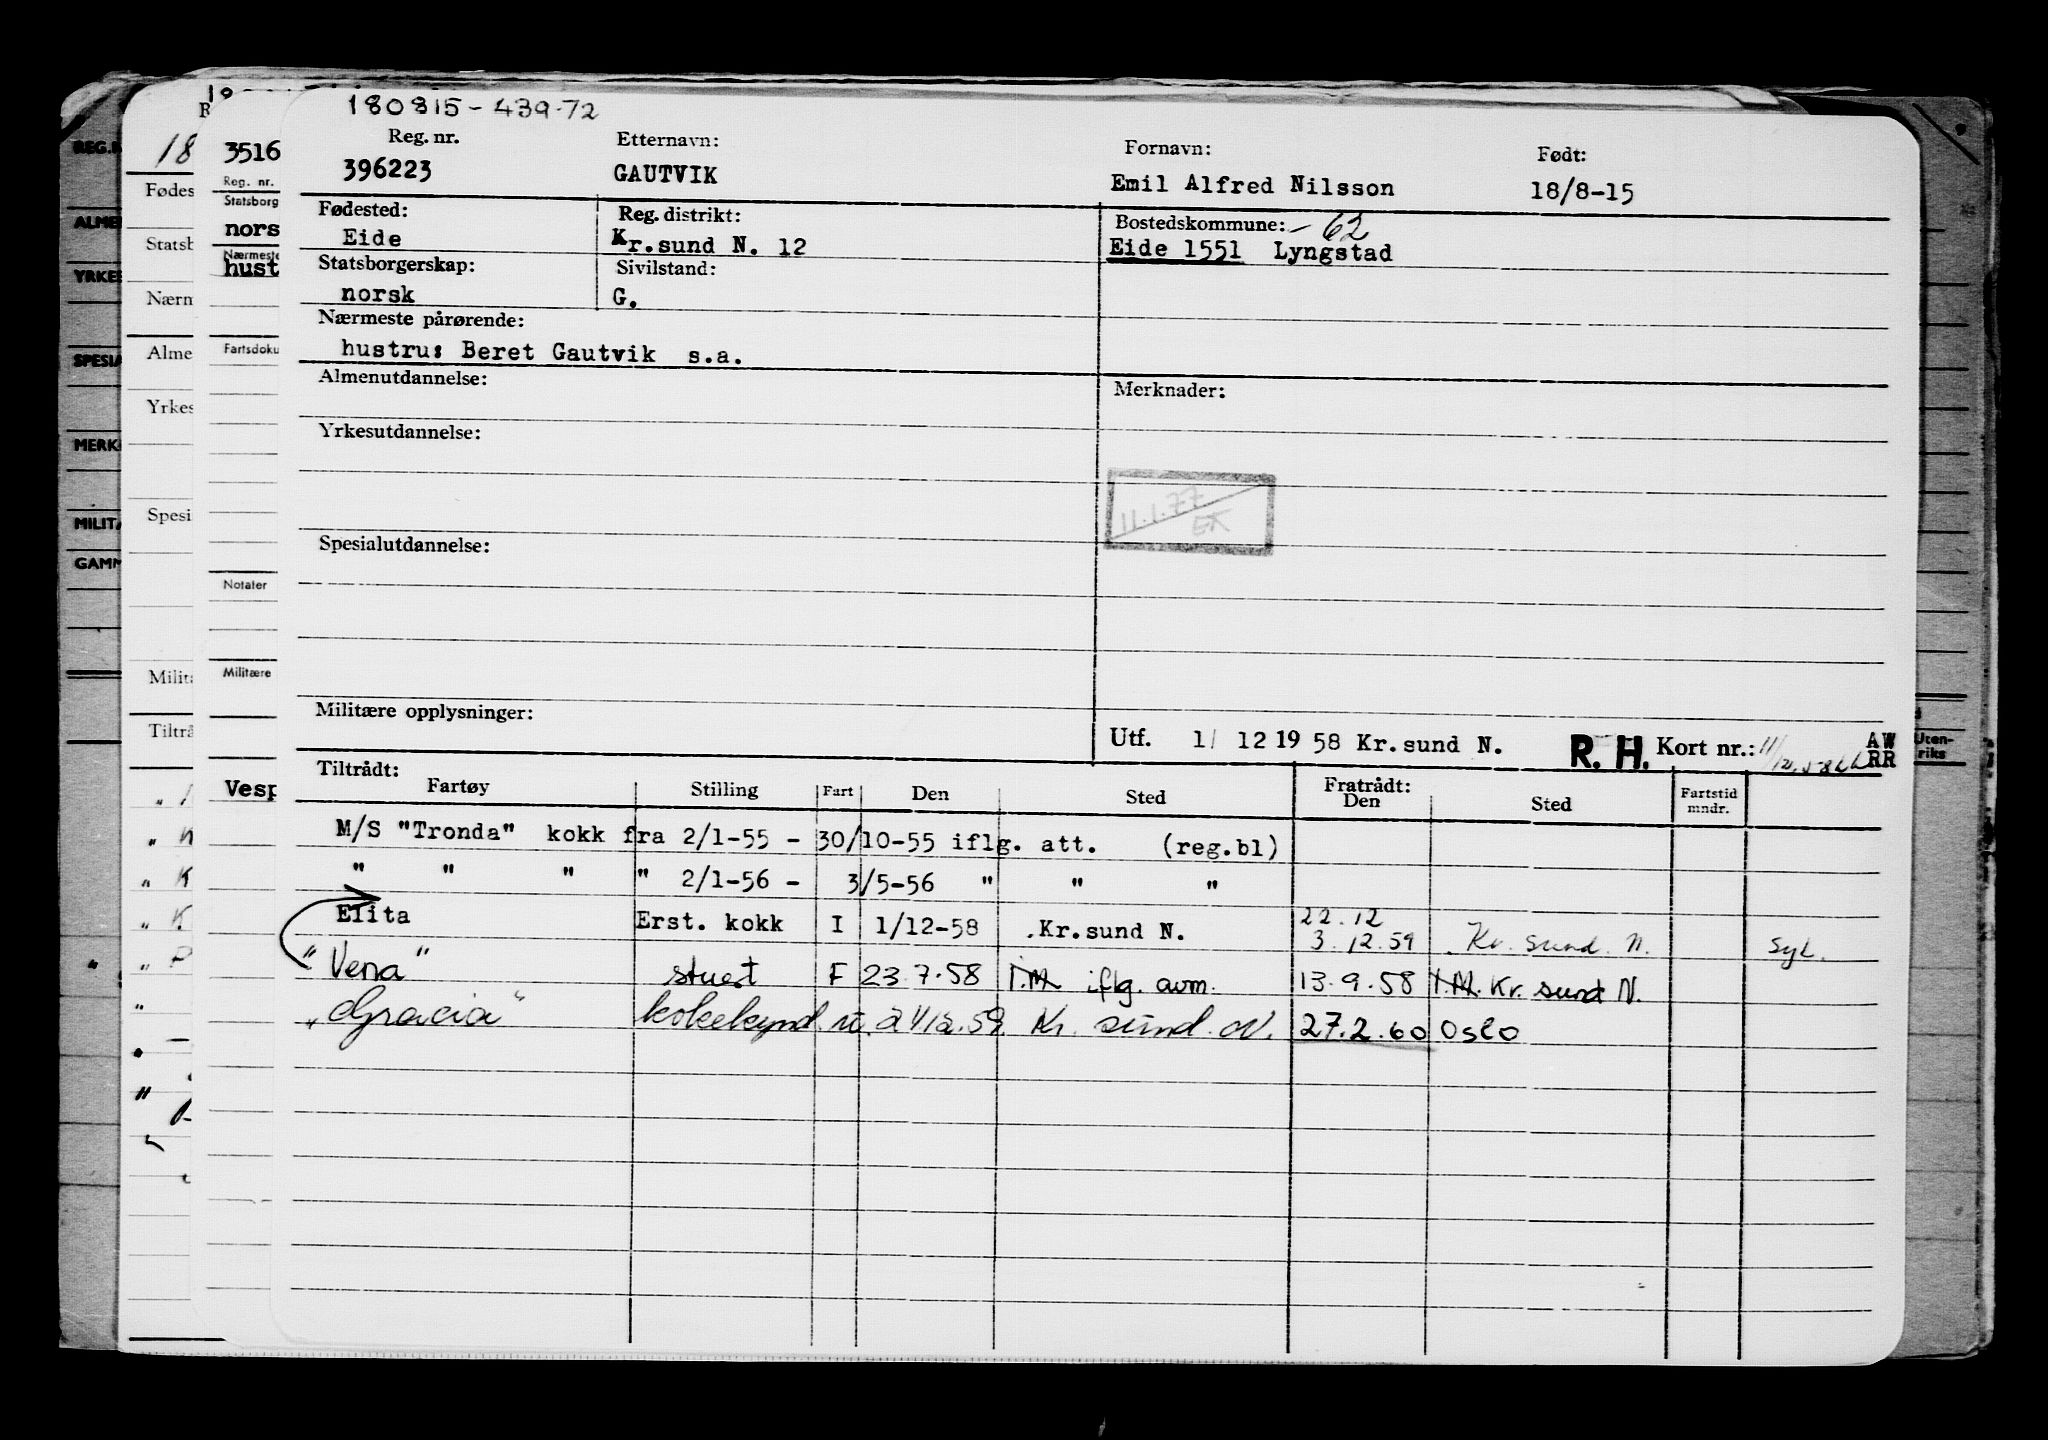 180815-439-72
Reg. nr. Etternavn: Fornavn: Født:
396223 GAUTVIK Emil Alfred Nilsson 18/8-15
Fødested: Reg. distrikt: Bostedskommune: -62
Eide Kr.sund N. 12 Eide 1551 Lyngstad
Statsborgerskap: Sivilstand:
norsk G.
Nærmeste pårørende:
hustru: Beret Gautvik s.a.
Almenutdannelse: Merknader:
Yrkesutdannelse:
11.1.77
Spesialutdannelse:
Militære opplysninger:
Utf. 1/ 12 19 58 Kr.sund N. R. H. Kort nr.: AW RR
Tiltrådt: Fratrådt:
Fartøy Stilling Fart Den Sted Den Sted Fartstid mndr.
M/S "Tronda" kokk fra 2/1-55 - 30/10-55 iflg. att. (reg.bl)
" " " " 2/1-56 - 3/5-56 " " "
Elita Erst. kokk I 1/12-58 Kr.sund N. 22.12
3.12.59 Kr. sund. N. Syk.
"Vena" stuert F 23.7.58 iflg. avm. 13.9.58 Kr. sund N.
"Gracia" Kr. sund. N. 27.2.60 Oslo
3516
Reg. nr.
Statsborg
nors
Nærmeste
hust
Fartsdoku
Notater
Militære
Vesp
18
Fødes
Statsb
Nærm
Alme
Yrkes
Spesi
Milit
Tiltrå
REG.N
ALME
YRKES
SPESIA
MERK
MILITÆ
GAMM
Uten-
riks